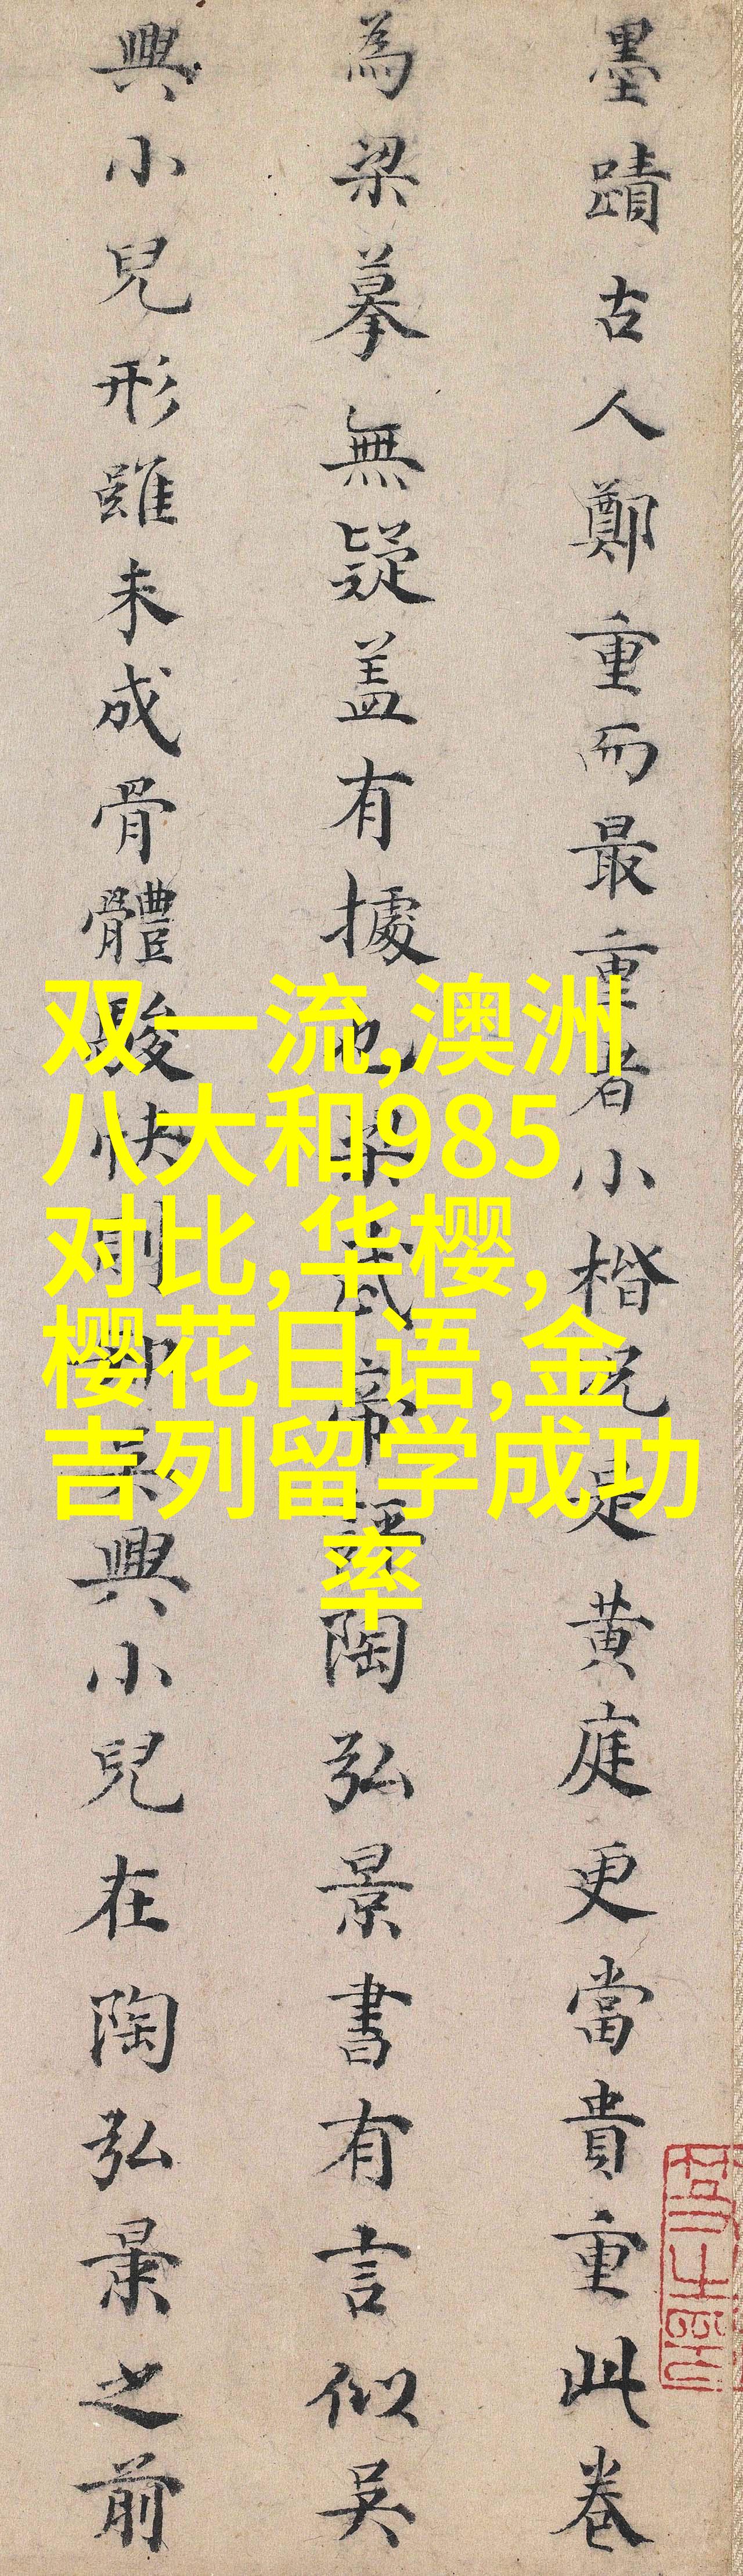 墨蹟古人鄭重而最重者小楷况是黄庭更當貴重此卷
為梁摹無疑盖有據也梁武帝語陶弘景書有言似吴
興小兒形雖未成骨體駿快則知吴興小兒在陶弘景之前
双一流,澳洲
八大和985
对比,华樱,
樱花日语,金
吉列留学成功
率